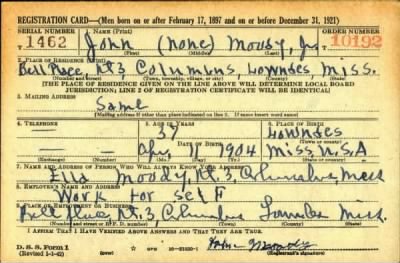 REGISTRATION CARD—(Men born on or after February 17, 1897 and on or before December 31, 1921)
SERIAL NUMBER 1. NAME (Print) ORDER NUMBER
1462 John (None) Moody, Jr. 10192
(First) (Middle) (Last)
2. PLACE OF RESIDENCE (Print)
Bell Place, Rt 3 Columbus Lowndes Miss.
(Number and street) (Town, township, village, or city) (County) (State)
[THE PLACE OF RESIDENCE GIVEN ON THE LINE ABOVE WILL DETERMINE LOCAL BOARD
JURISDICTION; LINE 2 OF REGISTRATION CERTIFICATE WILL BE IDENTICAL]
3. MAILING ADDRESS
Same
[Mailing address if other than place indicated on line 2. If same insert word same]
4. TELEPHONE 5. AGE IN YEARS 6. PLACE OF BIRTH
— 37 Lowndes
DATE OF BIRTH (Town or county)
— Apr 11 1904 Miss. U.S.A
(Exchange) (Number) (Mo.) (Day) (Yr.) (State or country)
7. NAME AND ADDRESS OF PERSON WHO WILL ALWAYS KNOW YOUR ADDRESS
Ella Moody, Rt. 3, Columbus, Miss
8. EMPLOYER'S NAME AND ADDRESS
Work for self
9. PLACE OF EMPLOYMENT OR BUSINESS
Bell place Rt. 3, Columbus Lowndes Miss.
(Number and street or R. F. D. number) (Town) (County) (State)
I AFFIRM THAT I HAVE VERIFIED ABOVE ANSWERS AND THAT THEY ARE TRUE.
D. S. S. Form 1
(Revised 1-1-42) (over) 16—21630-1 John Moody
(Registrant's signature)